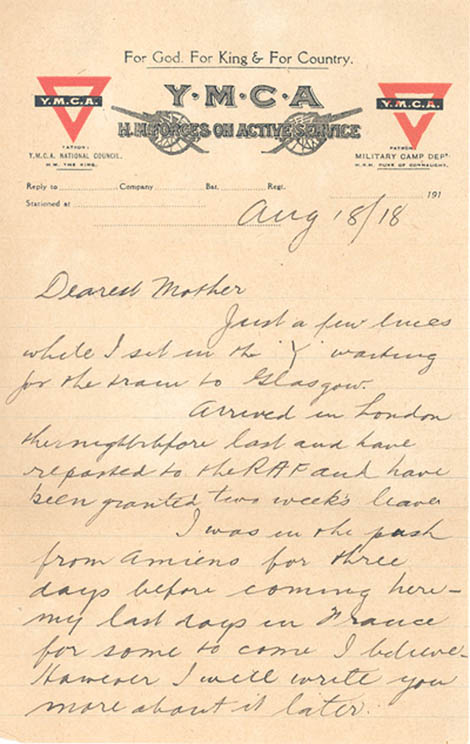 For God. For King & For Country.
Y·M·C·A
H.M. FORCES ON ACTIVE SERVICE
Y.M.C.A.
PATRON:
Y.M.C.A. NATIONAL COUNCIL.
H.M. THE KING.
Y.M.C.A.
PATRON:
MILITARY CAMP DEPT.
H.R.H. DUKE OF CONNAUGHT.
Reply to Company Bat. Regt. 191
Stationed at
Aug 18/18
Dearest Mother
Just a few lines
while I sit in the "Y" waiting
for the train to Glasgow.
Arrived in London
the night before last and have
reported to the RAF and have
been granted two week's leave
I was in the push
from Amiens for three
days before coming here –
my last days in France
for some to come I believe.
However I will write you
more about it later.